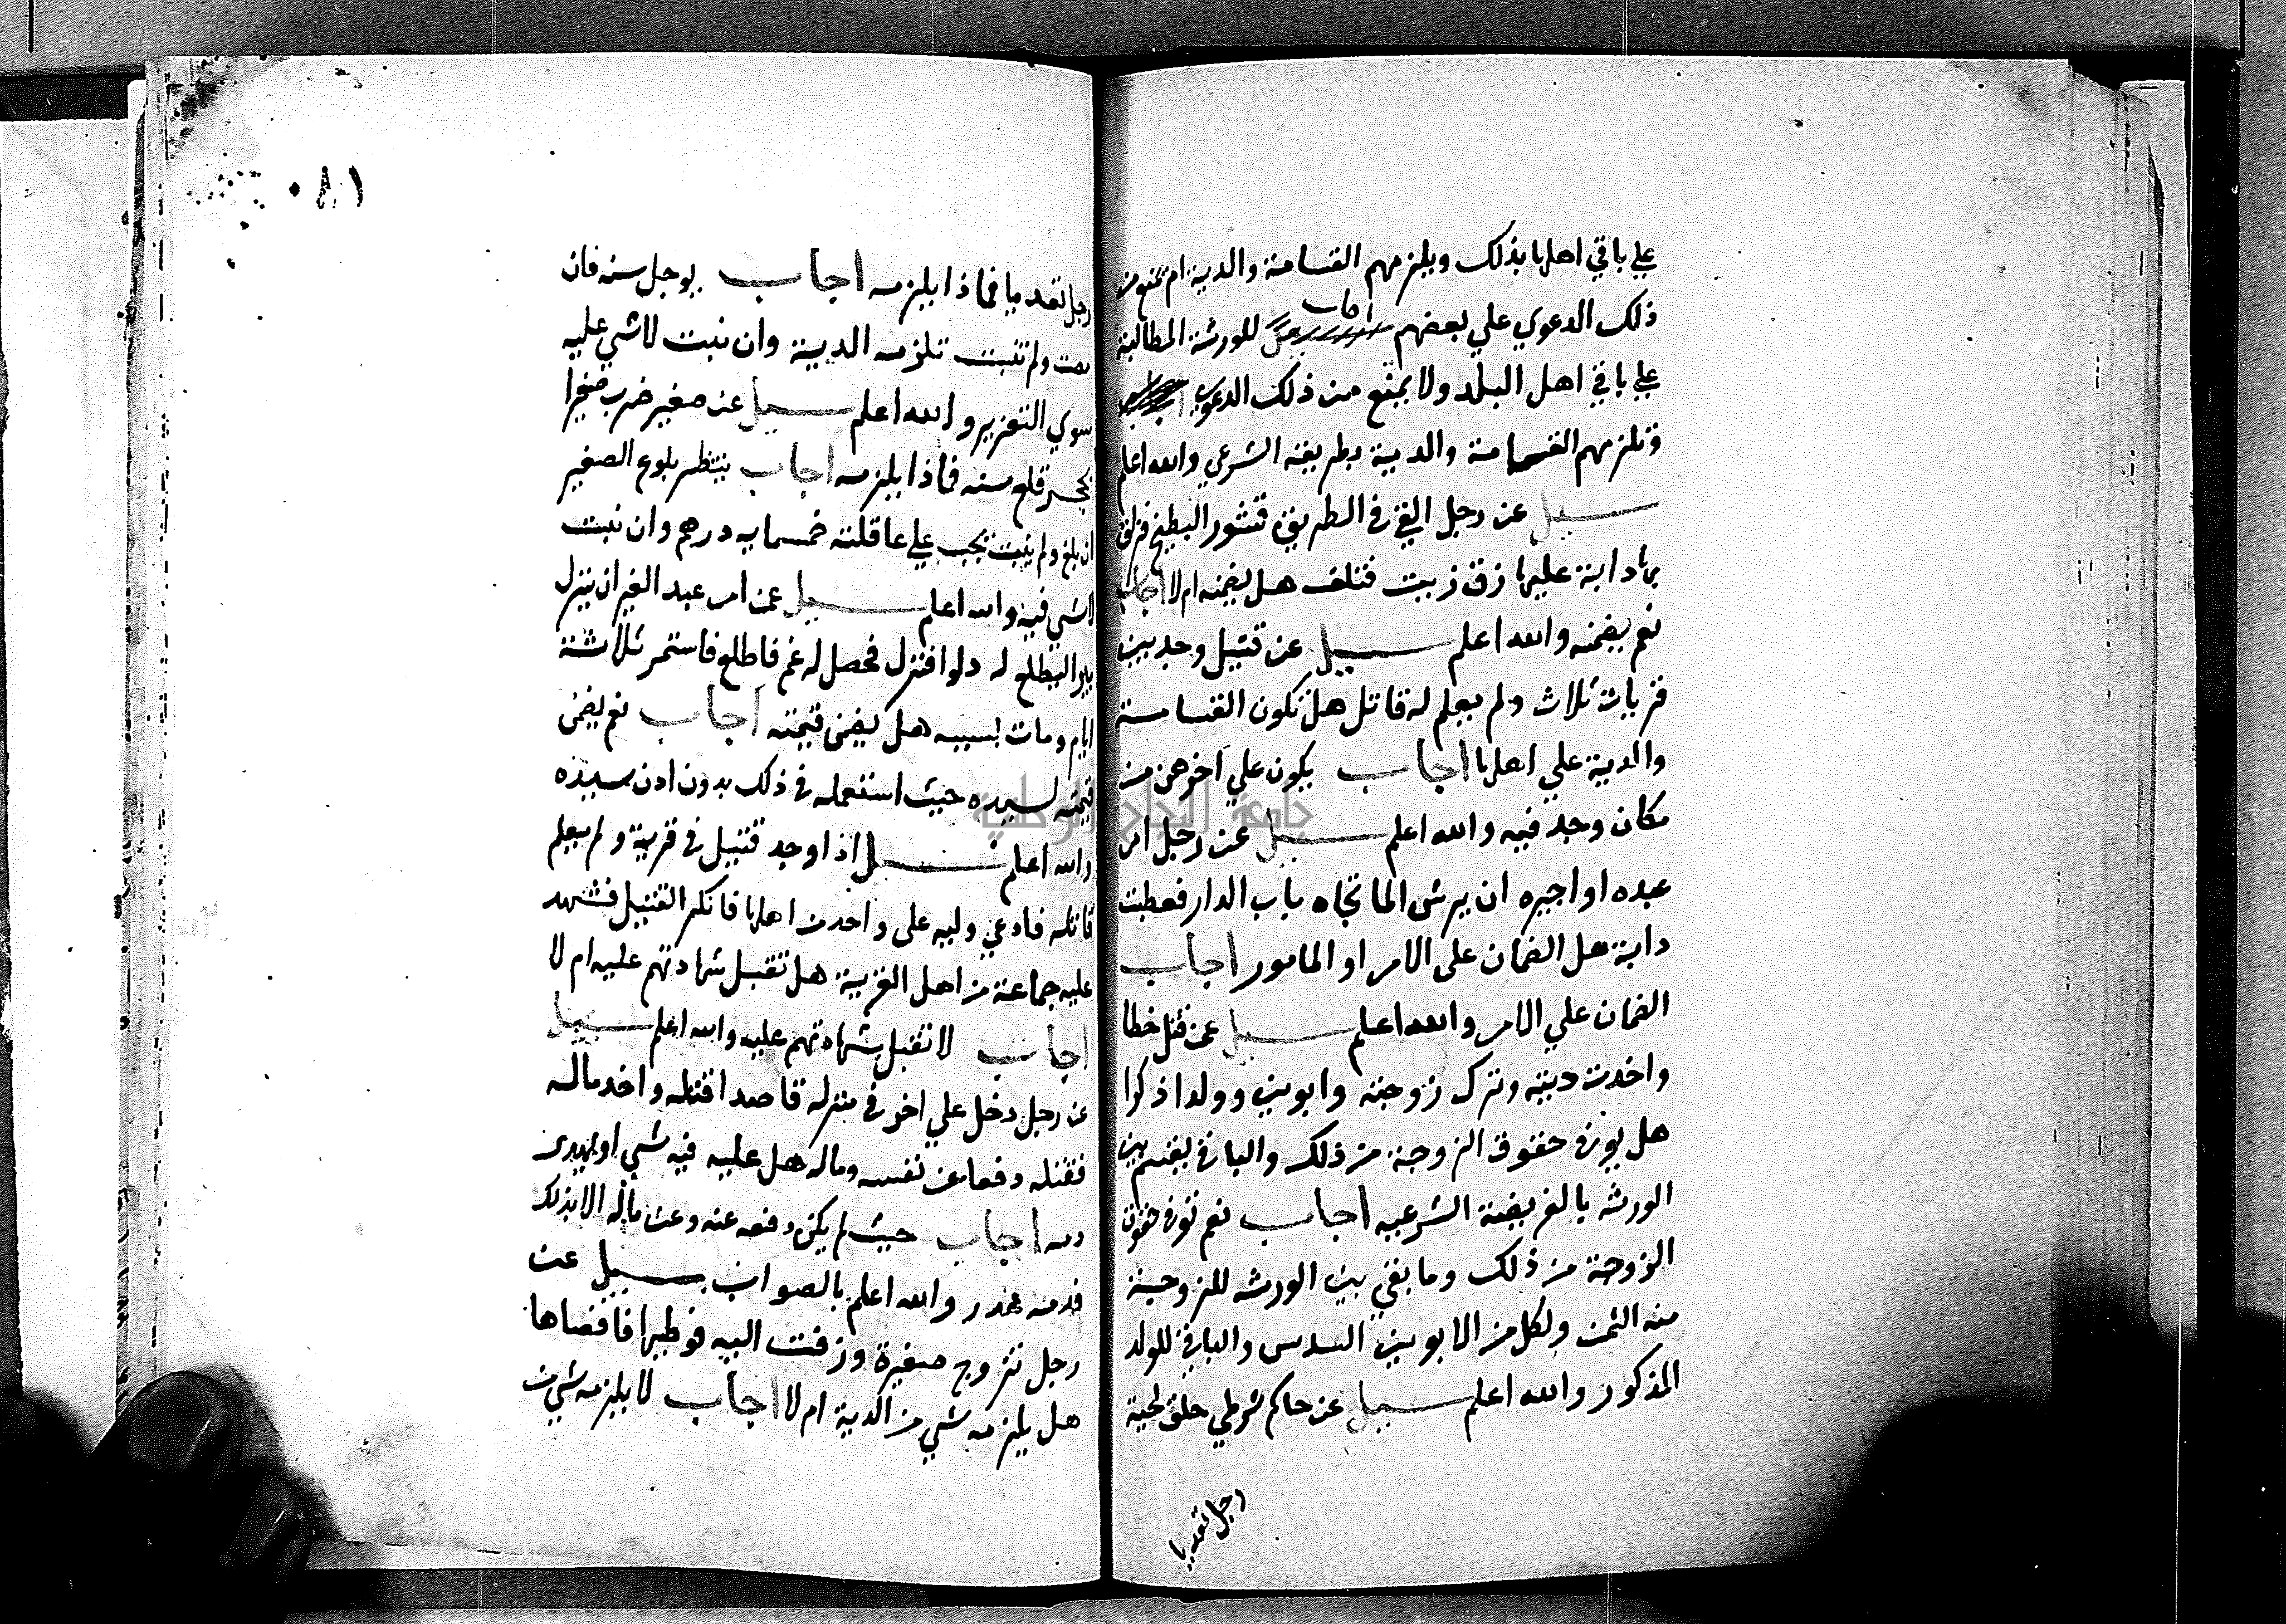 علي باقي اهلها بذلك ويلزمهم القسامة والدية ام تمنع من
ذلك الدعوي علي بعضهم اجاب للورثة المطالبة
علي باقي اهل البلد ولا يمتنع من ذلك الدعوي
وتلزمهم القسامة والدية بطريقه الشرعي والله اعلم
سيل عن رجل القي في الطريق قشور البطيخ فزلق
بها دابة عليها زق زيت فتلف هل يضمنه ام لا اجاب
نعم يضمنه والله اعلم سيل عن قتيل وجد بين
قريات ثلاث ولم يعلم له قاتل هل تكون القسامة
والدية علي اهلها اجاب يكون علي اخرهن من
مكان وجد فيه والله اعلم سيل عن رجل امر
عبده او اجيره ان يرش الما تجاه باب الدار فعطبت
دابة هل الضمان على الامر او المامور اجاب
الضمان علي الامر والله اعلم سيل عن قتل خطا
واخذت ديته وترك زوجته وابوين وولدا ذكرا
هل يوفي حقوق الزوجة من ذلك والباقي يقسم بين
الورثه بالفريضة الشرعيه اجاب نعم توفي حقوق
الزوجة من ذلك وما بقي بين الورثه للزوجة
منه الثمن ولكل من الابوين السدس والباقي للولد
المذكور والله اعلم سيل عن حاكم شرطي حلق لحية
رجل تعديا
٨١
رجل تعديا فماذا يلزمه اجاب يوجل سنه فان
مضت ولم تنبت تلزمه الدية وان نبت لا شي عليه
سوي التعزير والله اعلم سيل عن صغير ضرب صغيرا
بحجر قلع سنه فماذا يلزمه اجاب ينتظر بلوغ الصغير
ان بلغ ولم ينبت يجب علي عاقلته خمسمايه درهم وان نبت
لا شي فيه والله اعلم سيل عمن امر عبد الغير ان ينزل
بيرا ليطلع له دلوا فنزل فحصل له غم فاطلع فاستمر ثلاثة
ايام ومات بسببه هل يضمن قيمته اجاب نعم يضمن
قيمته لسيده حيث استعمله في ذلك بدون اذن سيده
والله اعلم سيل اذا وجد قتيل في قرية ولم يعلم
قاتله فادعي وليه على واحد من اهلها فانكر القتيل فشهد
عليه جماعة من اهل القرية هل تقبل شهادتهم عليه ام لا
اجاب لا تقبل شهادتهم عليه والله اعلم سيل
عن رجل دخل علي اخر في منزله قاصدا قتله واخد ماله
فقتله دفعا عن نفسه وماله هل عليه فيه شي او يهدر
دمه اجاب حيث لم يكن دفعه عنه وعن ماله الا بذلك
فدمه هدر والله اعلم بالصواب سيل عن
رجل تزوج صغيرة وزفت اليه فوطيها فافضاها
هل يلزمه شي من الدية ام لا اجاب لا يلزمه شي من
جامعة النجاح الوطنية